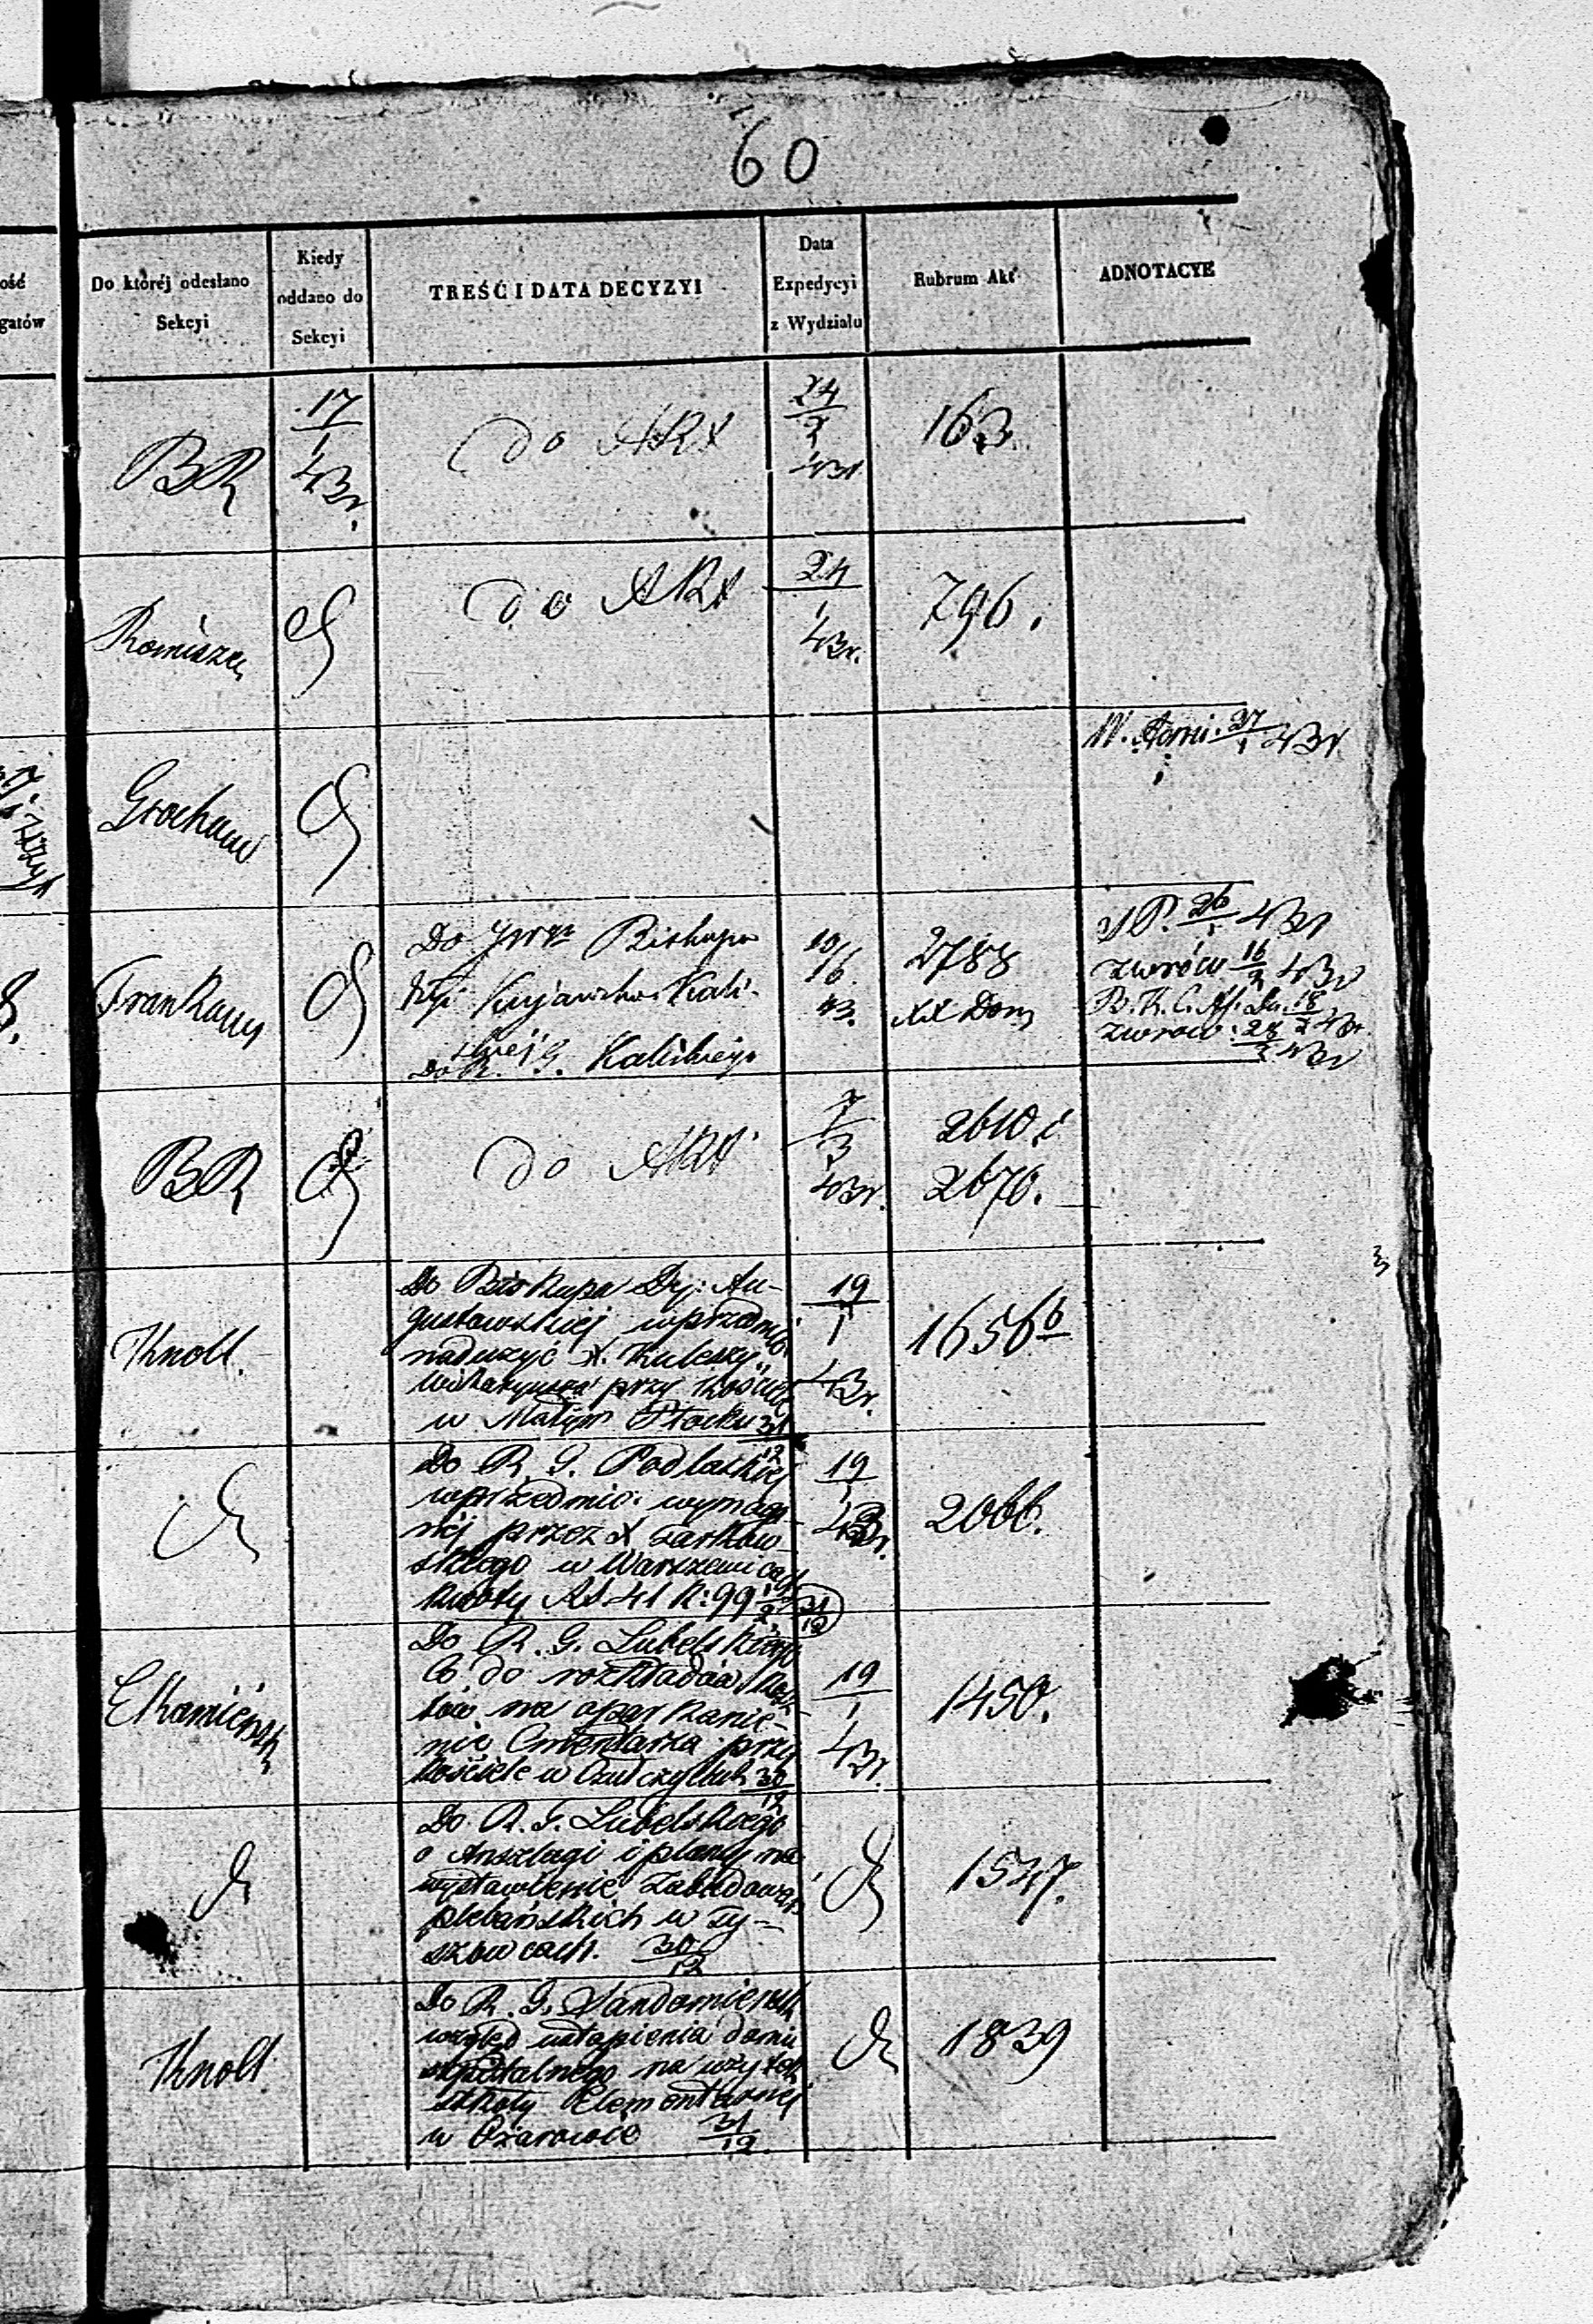 60
ość
gatów
Do któréj odesłano
Sekcyi
Kiedy
oddano do
Sekcyi
TREŚĆ I DATA DECYZYI
Data
Expedycyi
z Wydziału
Rubrum Akt
ADNOTACYE
BR
17
1
43r.
Do ARX
24
2
43r
163.
Do ARX
24
1
43r.
796.
Grochow
27
1 43r
Do Biskupa
Kujawsko-Kali-
skiej
Do R. G. Kaliskiego
10/6
43.
2788
26
1 43r
zwróco 16/2 43r
zwróco. 28/2 43r
BR
Do ARX
7
3
43r.
2610 i
2670.
Knoll.
Do Biskupa Dyj: Au-
gustowskiej wprzedmio.
nadużyć X. Kuleszy
wikaryusza przy Kościele
w Małym Płocku 31/12
19
1
43r.
1656b
Do R. G. Podlaskiej
wprzedmio. wymaga
nej przez X Tarkow-
skiego w Warszewicach
kwoty Rs 41 k: 99 1/2 31/12
19
1
43r.
2066.
EKamiensk
Do R. G. Lubelskiego
Co do rozkładu kosz-
tów na oparkanie-
nie Cmentarza przy
kościele w Czułczycach 30/12
19
1
43r.
1450.
Do R. G. Lubelskiego
o Anszlagi i plany na
wystawienie Zabudowań
plebańskich w Ty-
szowcach. 30/12
1547.
Knoll
Do R. G. Sandomiersk
wzgled ustąpienia domu
szpitalnego na użytek
szkoły Elementarnej
w Ożarowie 31/12
1839